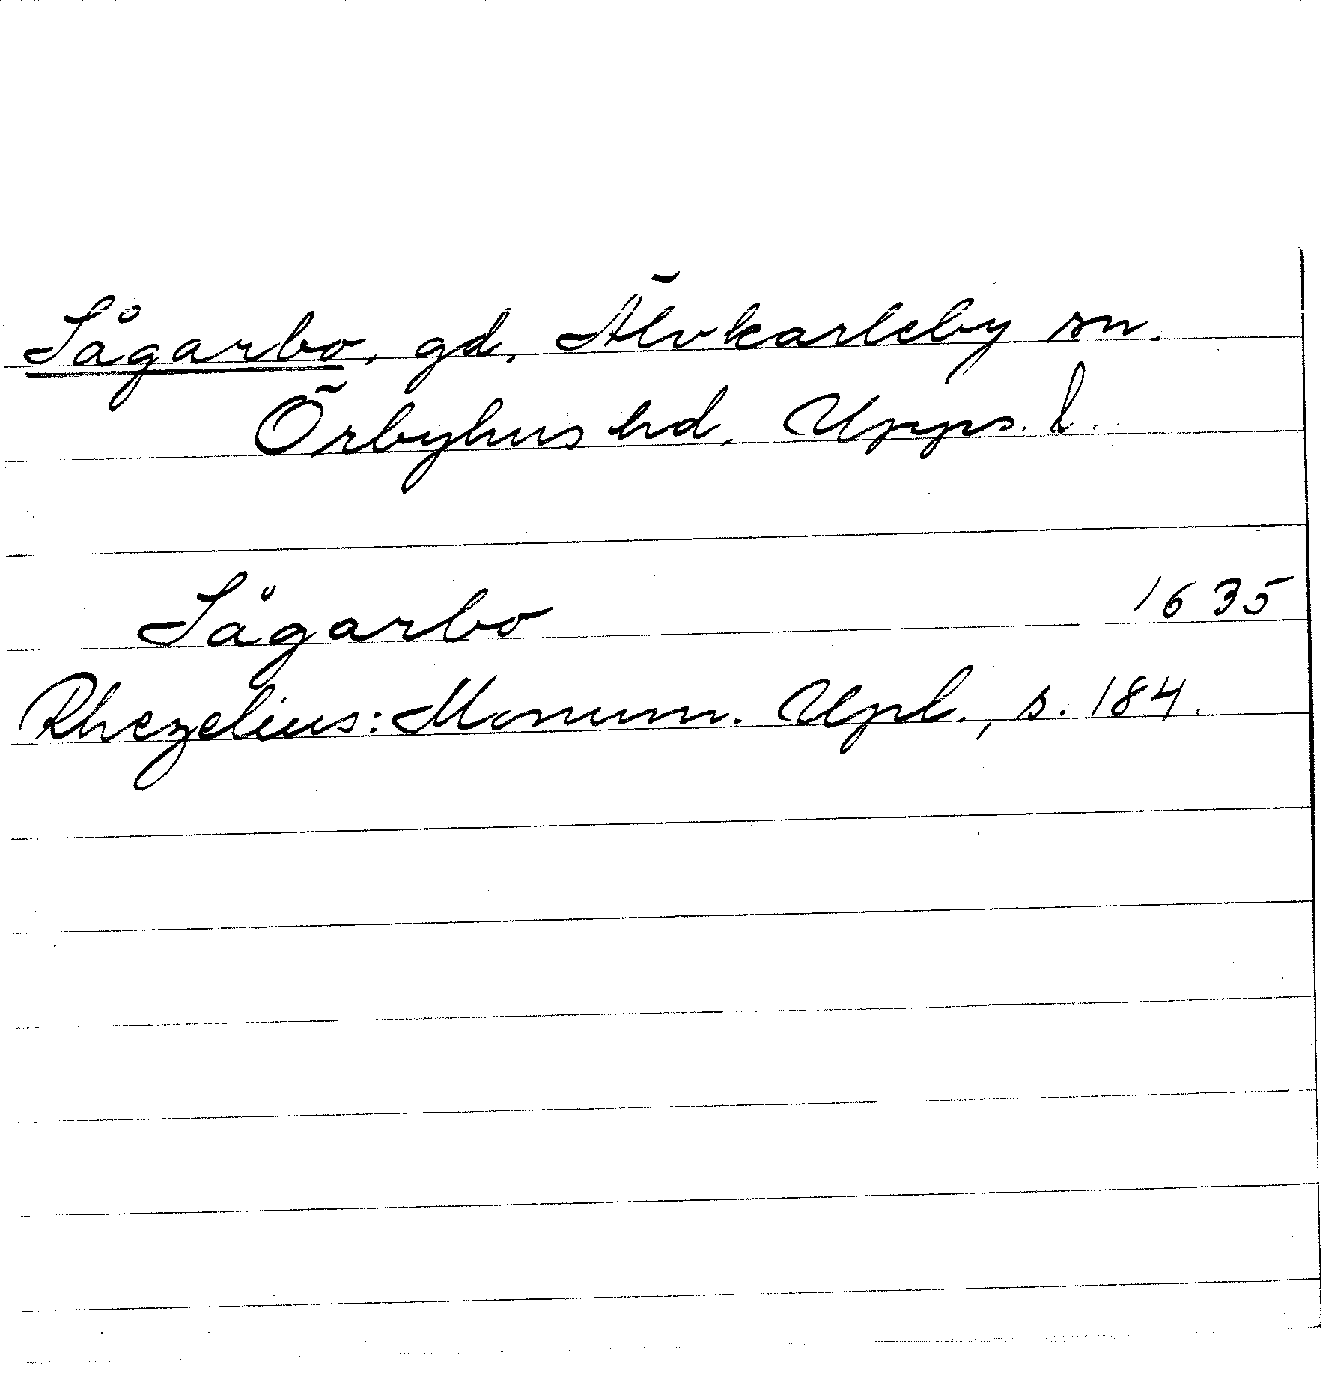 Sågarbo, gd, Älvkarleby sn.
Örbyhus hd, Upps. l.
Sågarbo 1635
Rhezelius: Monum. Upl., s. 184.